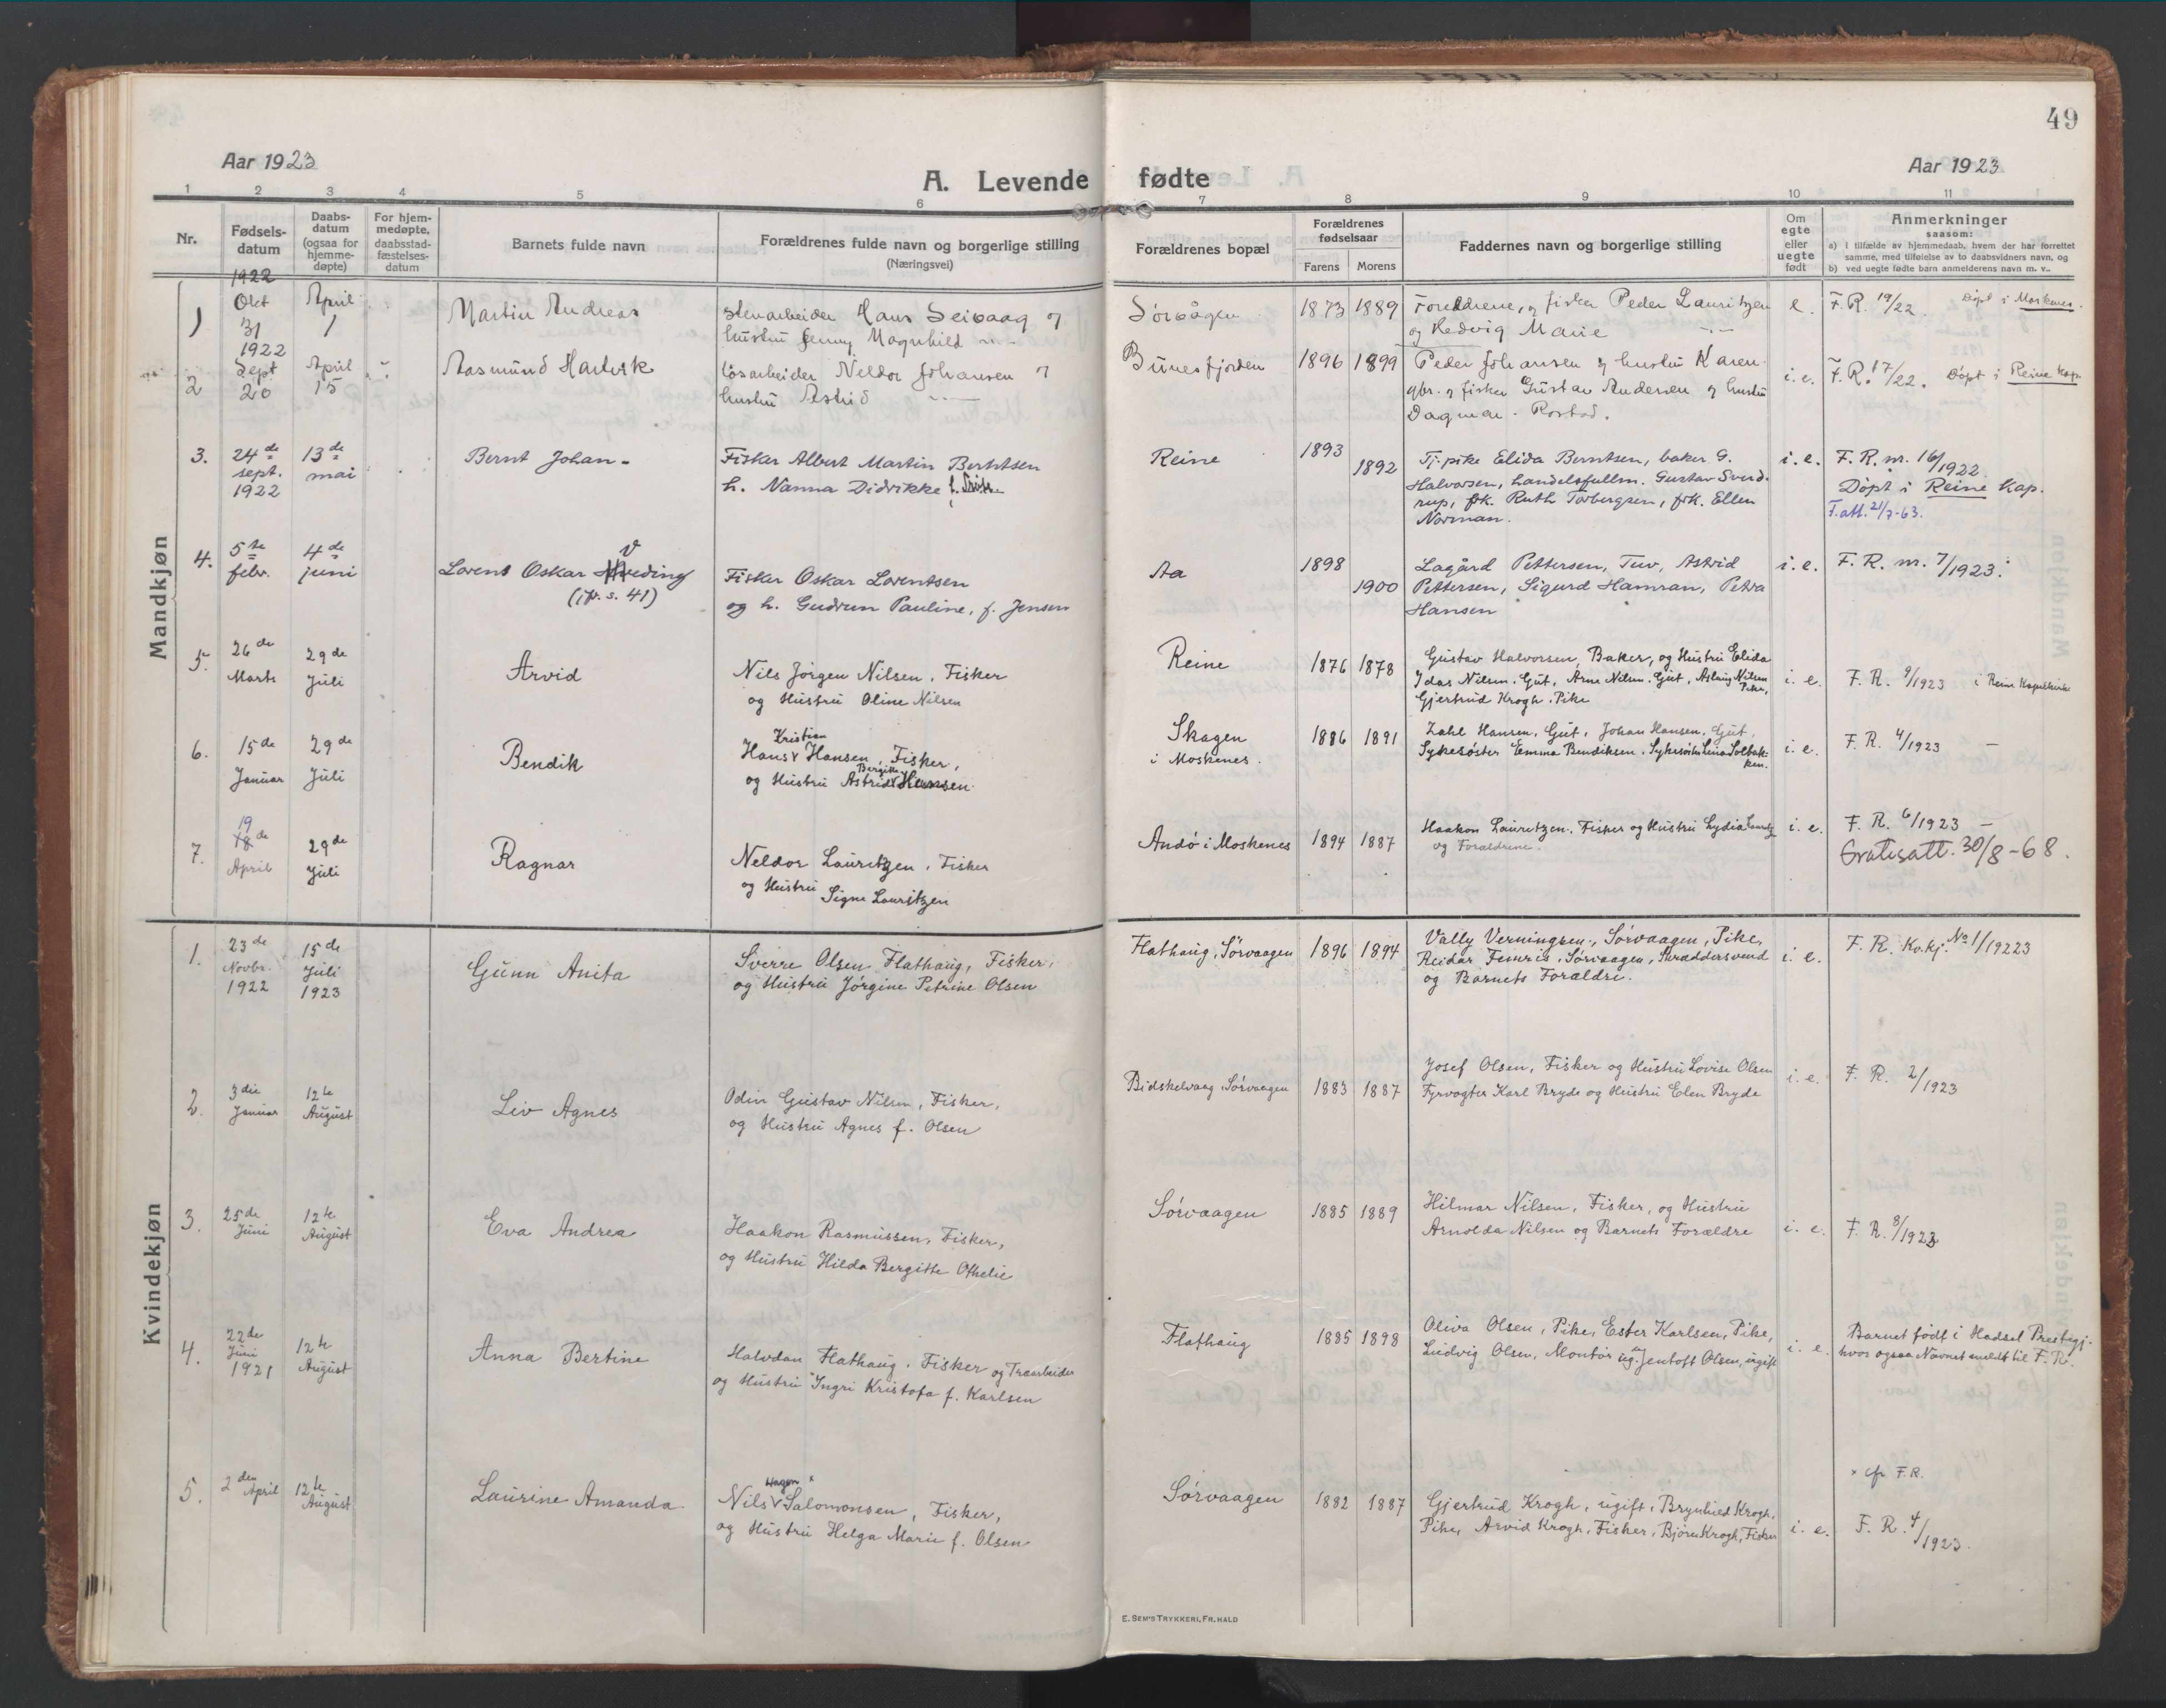 49
Aar 1923
A. Levende fødte
Aar 1923
1 2 3 4 5 6 7 8 9 10 11
Nr.
Fødsels-
datum
Daabs-
datum
(ogsaa for
hjemme-
døpte)
For hjem-
medøpte,
daabsstad-
fæstelses-
datum
Barnets fulde navn
Forældrenes fulde navn og borgerlige stilling
(Næringsvei)
Forældrenes bopæl
Forældrenes
fødselsaar
Farens Morens
Faddernes navn og borgerlige stilling
Om
egte
eller
uegte
født
Anmerkninger
saasom:
a) i tilfælde av hjemmedaab, hvem der har forrettet
samme, med tilføielse av to daabsvidners navn, og
b) ved uegte fødte barn anmelderens navn m. v..
Mandkjøn
1
1922
Okt
31
April
1
Martin Andreas
stenarbeider Hans Seivaag og
hustru Jenny Magnhild
Sørvågen
1873 1889
Foreldrene, og fisker Peder Lauritzen
og Hedvig Marie
e.
F.R. 19/22. Døpt i Moskenes.
2
1922
Sept
20
April
15
Rasmund Hartvik
løsarbeider Neldor Johansen og
hustru Astrid
Bunesfjorden
1896 1899
Peder Johansen og hustru Karen
gbr. og fisker Gustav Andersen og hustru
Dagmar. Rostad.
i. e.
F.R. 17/22. Døpt i Reine Kap.
3.
24de
sept.
1922
13de
mai
Bernt Johan
Fisker Albert Martin Berntsen
h. Nanna Didrikke f.
Reine
1893
1892
Tj.pike Elida Berntsen, baker G.
Halvorsen, handelsfullm. Gustav Sverd-
rup, frk. Ruth Torbergsen, frk. Ellen
Norman.
i. e.
F. R. nr. 16/1922.
Døpt i Reine Kap.
F.att. 21/7-63.
4.
5te
febr.
4de
juni
V
Lorent Oskar reding
(jfr. s. 41)
Fisker Oskar Lorentsen
og h. Gudrun Pauline, f. Jensen
Aa
1898
1900
Lagård Pettersen, Tuv, Astrid
Pettersen, Sigurd Hamran, Petra
Hansen
i. e.
F. R. nr. 7/1923.
5.
26de
Marts
29de
Juli
Arvid
Nils Jørgen Nilsen, Fisker
og Hustru Oline Nilsen
Reine
1876 1878
Gustav Halvorsen, Baker, og Hustru Elida
Idas Nilsen, Gut, Arne Nilsen, Gut, Aslaug Nilsen
Pike,
Gjertrud Krogh, Pike
i. e.
F. R. 9/1923 i Reine Kapelkirke
6.
15de
Januar
29de
Juli
Bendik
Kristian
Hans Hansen, Fisker,
Bergitte
og Hustru Astrid Hansen.
Skagen
i Moskenes.
1886 1891
Zahl Hansen, Gut, Johan Hansen, Gut,
Sykesøster Emma Bendiksen, Sykesøster Lina Solbak-
ken.
i. e.
F. R. 4/1923 —
7.
19
18de
April
29de
Juli
Ragnar
Neldor Lauritzen, Fisker
og Hustru Signe Lauritzen
Andø i Moskenes
1894 1887
Haakon Lauritzen, Fisker og Hustru Lydia
og Forældrene.
i. e.
F. R. 6/1923 —
Gratisatt. 30/8-68.
Kvindekjøn
1.
23de
Novbr.
1922
15de
Juli
1923
Gunn Anita
Sverre Olsen Flathaug, Fisker,
og Hustru Jørgine Petrine Olsen
Flathaug, Sørvaagen
1896 1894
Vally Verningsen, Sørvaagen, Pike,
Reidar Femris, Sørvaagen, Skræddersvend
og Barnets Forældre.
i e.
F. R. Kv.kj. No 1/19223
2.
3die
Januar
12te
August
Liv Agnes
Odin Gustav Nilsen, Fisker,
og Hustru Agnes f. Olsen
Bidskelvaag, Sørvaagen
1883 1887
Josef Olsen, Fisker og Hustru Lovise Olsen
Fyrvogter Karl Bryde og Hustru Elen Bryde
i. e.
F. R. 2/1923
3.
25de
Juni
12te
August
Eva Andrea
Haakon Rasmussen, Fisker,
og Hustru Hilda Bergitte Othelie
Sørvaagen
1885 1889
Hilmar Nilsen, Fisker, og Hustru
Arnolda Nilsen og Barnets Forældre
i. e.
F. R. 8/1923
4.
22de
Juni
1921
12te
August
Anna Bertine
Halvdan Flathaug, Fisker og Træarbeider
og Hustru Ingri Kristofa f. Karlsen
Flathaug
1885 1898
Oliva Olsen, Pike, Ester Karlsen, Pike,
Ludvig Olsen, Montør ug. Jentoft Olsen, ugift
i. e.
Barnet født i Hadsel Prestegj.
hvor ogsaa Navnet meldt til F. R.
5.
2den
April
12te
August
Laurine Amanda
Hagen x
Nils Salomonsen, Fisker,
og Hustru Helga Marie f. Olsen
Sørvaagen
1882 1887
Gjertrud Krogh, ugift, Brynhild Krogh,
Pike, Arvid Krogh, Fisker, Bjørn Krogh, Fisker
i. e.
x cfr F.R.
F. R. 4/1923.
E. SEM'S TRYKKERI, FR. HALD